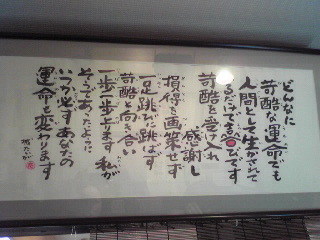 どんなに
苛酷な運命でも
人間として生かされて
るだけでまるもうけです
苛酷を受け入れ
感謝し
損得を画策せず
一足跳びに跳ばず
苛酷と向き合い
一歩一歩上ります 私が
そうであったように
いつか必ずあなたの
運命も変わります